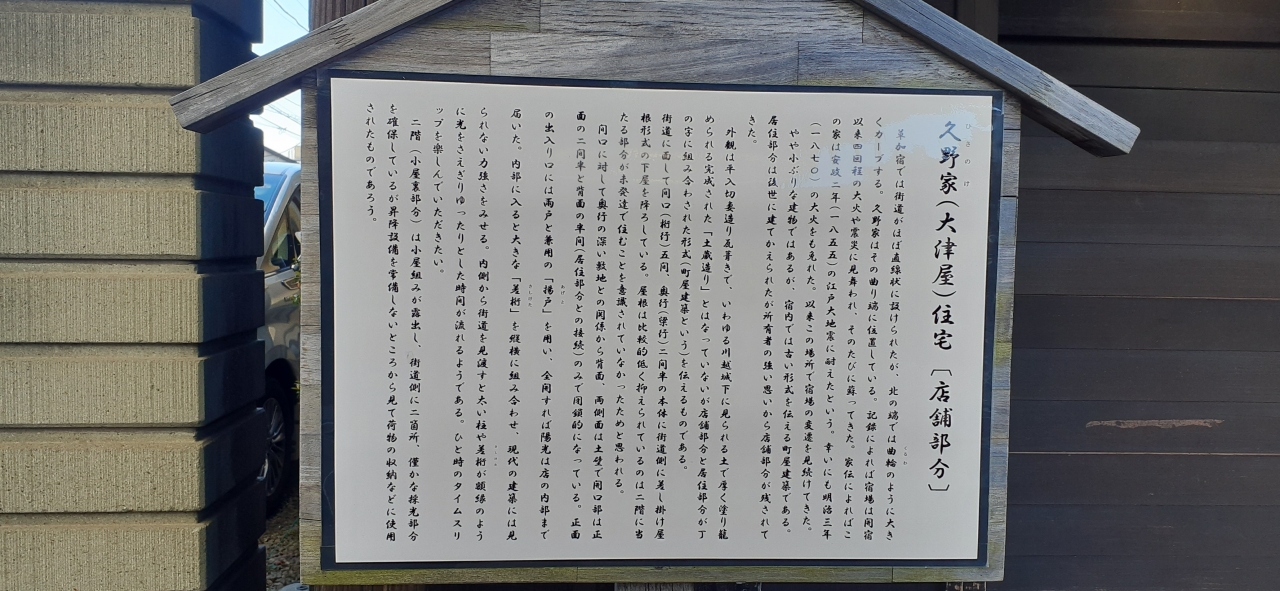 久野家(大津屋)住宅〔店舗部分〕
ひさのけ
草加宿では街道がほぼ直線状に設けられたが、北の端では曲輪のように大き
くるわ
くカーブする。久野家はその曲り端に位置している。記録によれば宿場は開宿
以来四回程の大火や震災に見舞われ、そのたびに蘇ってきた。家伝によればこ
の家は安政二年(一八五五)の江戸大地震に耐えたという。幸いにも明治三年
(一八七〇)の大火をも免れた。以来この場所で宿場の変遷を見続けてきた。
やや小ぶりな建物ではあるが、宿内では古い形式を伝える町屋建築である。
居住部分は後世に建てかえられたが所有者の強い思いから店舗部分が残されて
きた。
外観は平入切妻造り瓦葺きで、いわゆる川越城下に見られる土で厚く塗り籠
められる完成された「土蔵造り」とはなっていないが店舗部分と居住部分が丁
の字に組み合わされた形式(町屋建築という)を伝えるものである。
街道に面して間口(桁行)五間、奥行(梁行)二間半の本体に街道側に差し掛け屋
根形式の下屋を降ろしている。屋根は比較的低く抑えられているのは二階に当
たる部分が未発達で住むことを意識されていなかったためと思われる。
間口に対して奥行の深い敷地との関係から背面、両側面は土壁で開口部は正
面の二間半と背面の半間(居住部分との接続)のみで閉鎖的になっている。正面
の出入り口には雨戸と兼用の「揚戸」を用い、全開すれば陽光は店の内部まで
あげと
届いた。内部に入ると大きな「差桁」を縦横に組み合わせ、現代の建築には見
さしげた
られない力強さをみせる。内側から街道を見渡すと太い柱や差桁が額縁のよう
に光をさえぎりゆったりとした時間が流れるようである。ひと時のタイムスリ
ップを楽しんでいただきたい。
二階(小屋裏部分)は小屋組みが露出し、街道側に二箇所、僅かな採光部分
を確保しているが昇降設備を常備しないところから見て荷物の収納などに使用
されたものであろう。